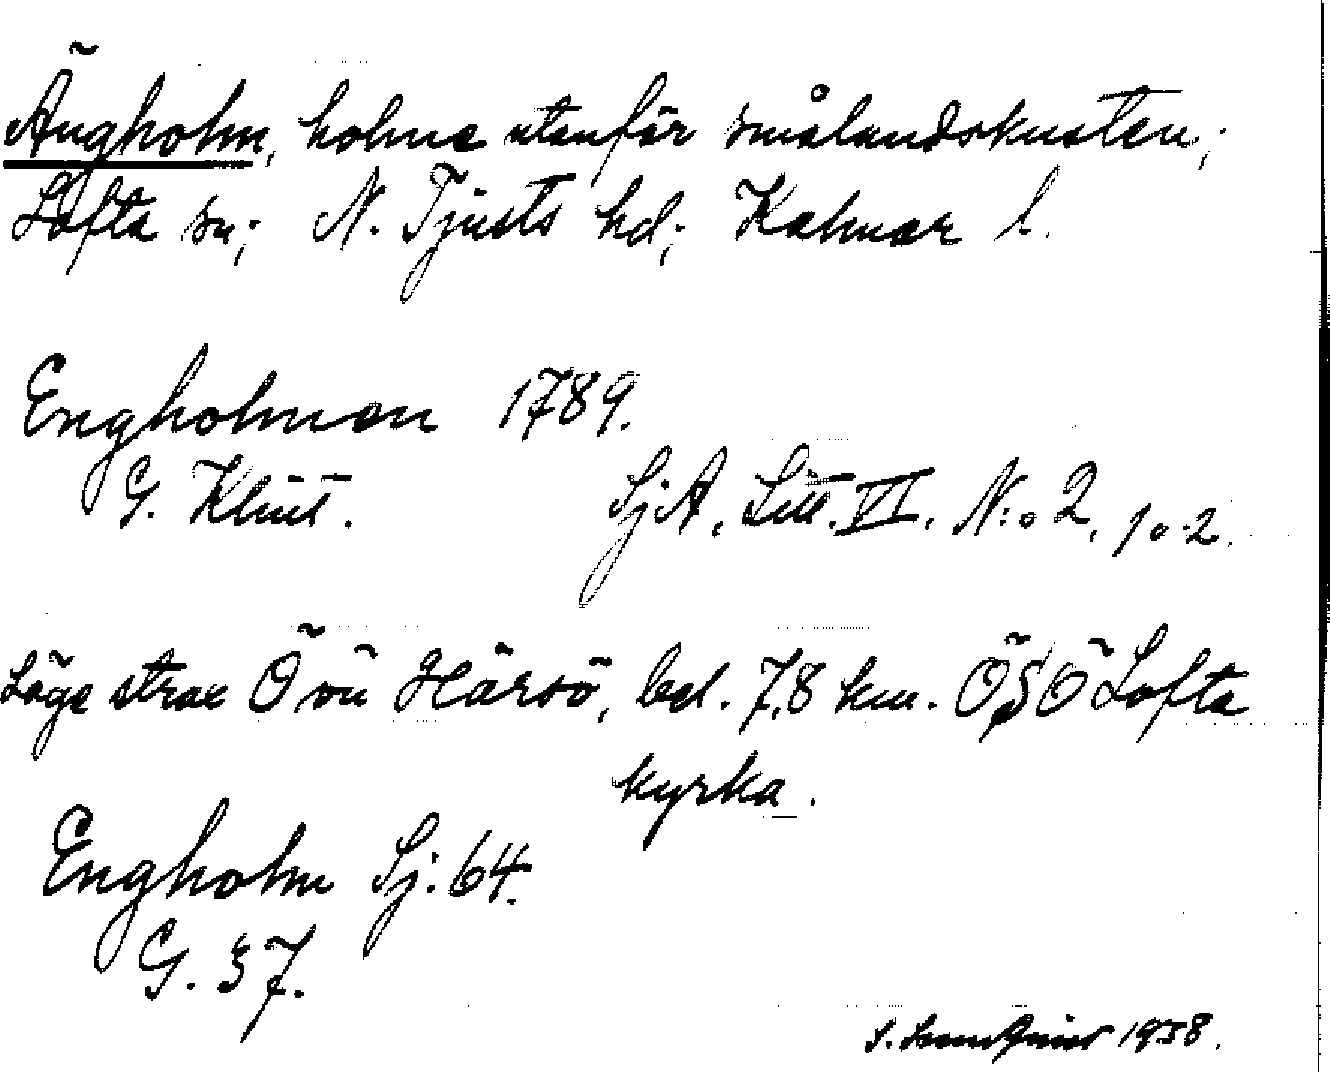 Ängholm, holme utanför smålandskusten;
Lofta sn; N. Tjusts hd; Kalmar l.
Engholmen 1789.
G. Klint. SjA. Litt. VI. N:o 2, 1o-2.
Läge strax Ö om Härsö, bel. 7,8 km. ÖSÖ Lofta
kyrka.
Engholm Sj. 64.
G. 37.
S. 1938.